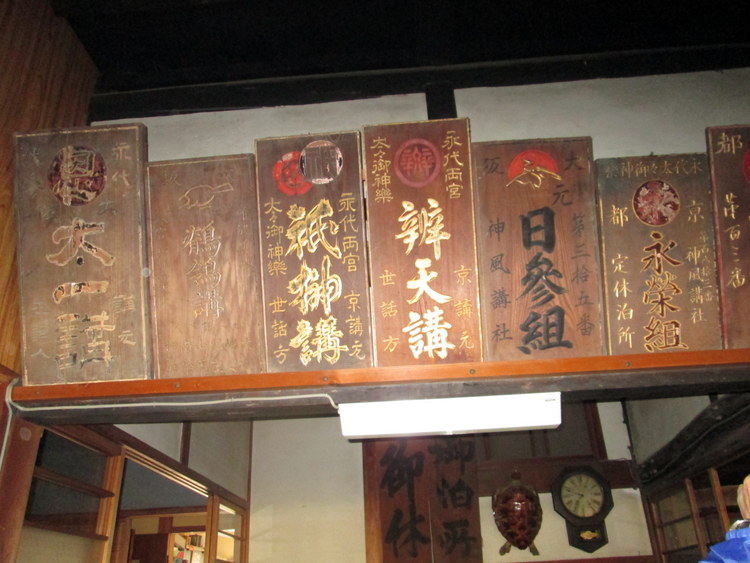 永代
大一講
講
永代両宮 京講元
祇榊講
太々御神樂 世話方
永代両宮 京講元
辨
辨天講
太々御神樂 世話方
元第三拾五番
日參組
神風講社
永代太々御神樂
京 神風講社
永榮組
都 定休泊所
都 百三番
御泊所
御休